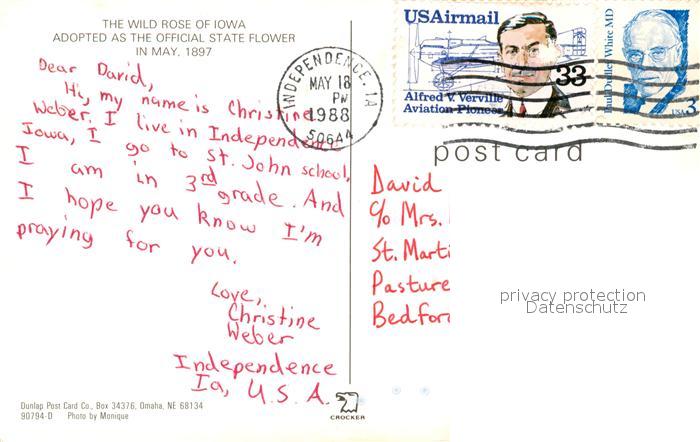 THE WILD ROSE OF IOWA
ADOPTED AS THE OFFICIAL STATE FLOWER
IN MAY, 1897
Dear David,
Hi, my name is Christine
Weber. I live in Independence
Iowa, I go to St. John school,
I am in 3rd grade. And
I hope you know I'm
praying for you.
Love,
Christine
Weber
Independence
Ia, U.S.A.
Dunlap Post Card Co., Box 34376, Omaha, NE 68134
90794-D Photo by Monique
CROCKER
INDEPENDENCE, IA
MAY 18
PM
1988
50644
USAirmail
33
Alfred V. Verville
Aviation Pioneer
Paul Dudley White MD
USA 3
post card
David
c/o Mrs.
St. Marti
Pasture
Bedfor
privacy protection
Datenschutz